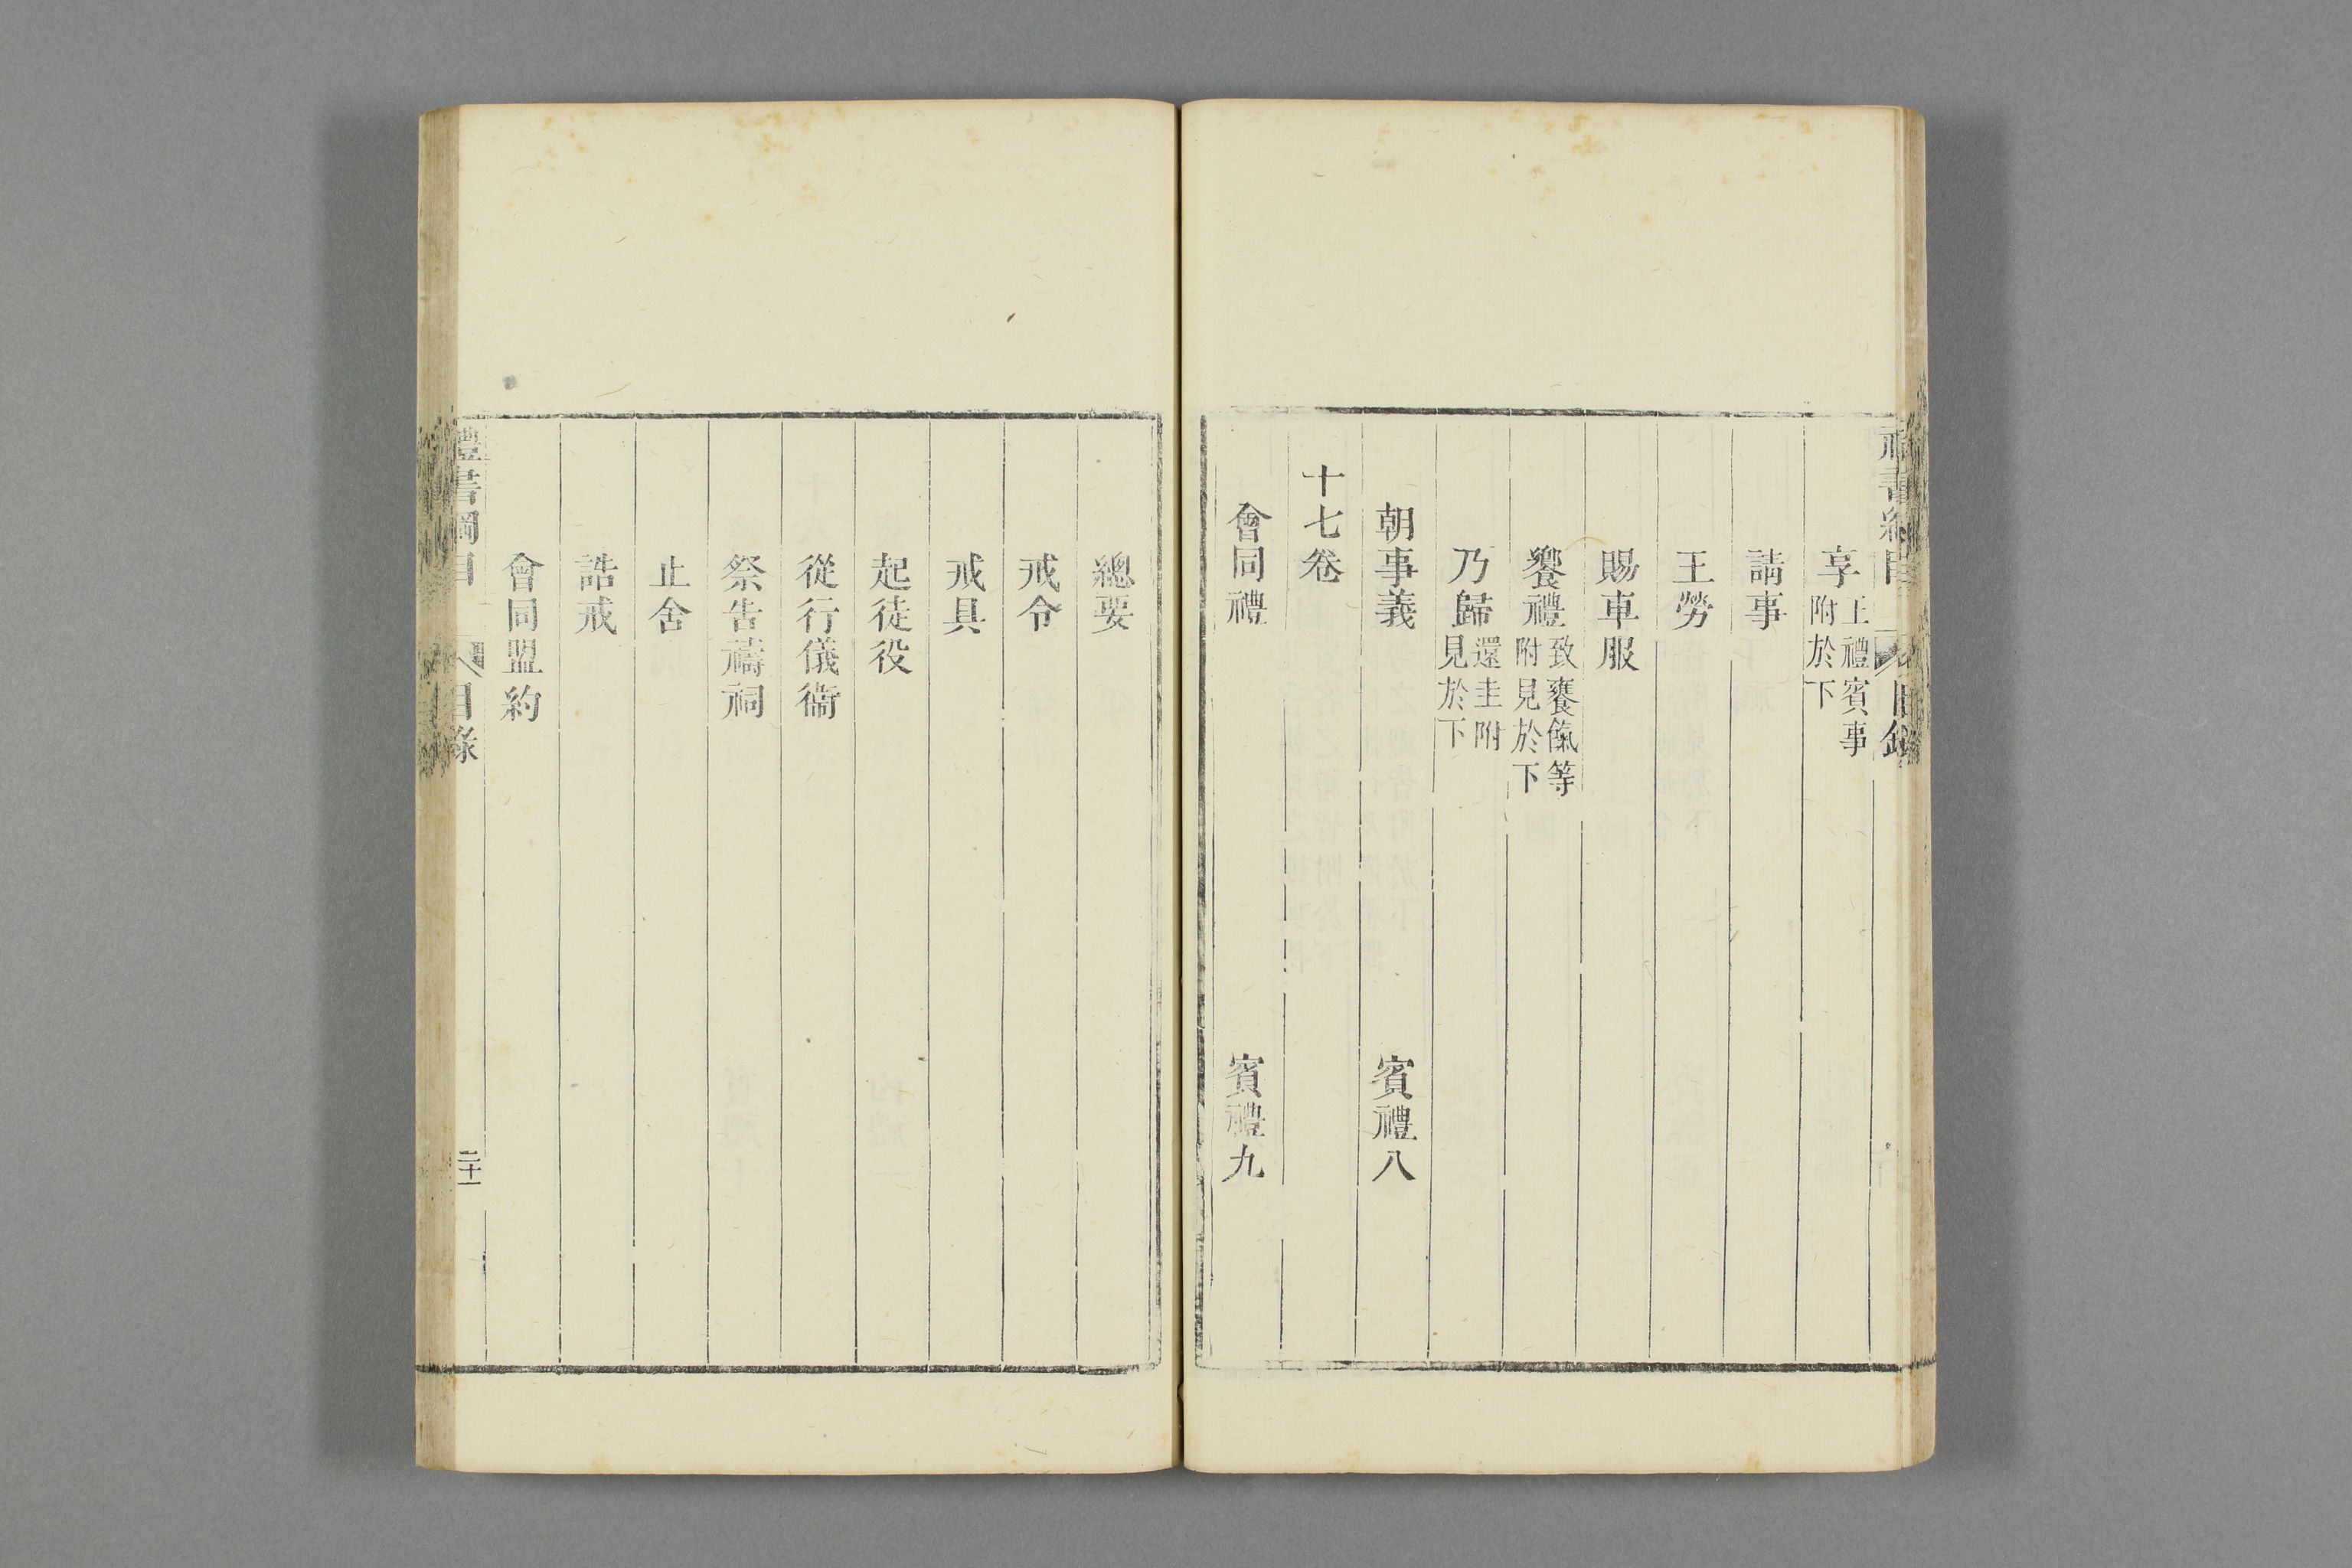 享王禮賓事附於下
請事
王勞
賜車服
饗禮致饔餼等附見於下
乃歸還圭附見於下
朝事義 賓禮八
十七卷
會同禮 賓禮九
總要
戒令
戒具
起徒役
從行儀衞
祭告禱祠
止舍
誥戒
會同盟約
禮書綱目 目錄 二十一